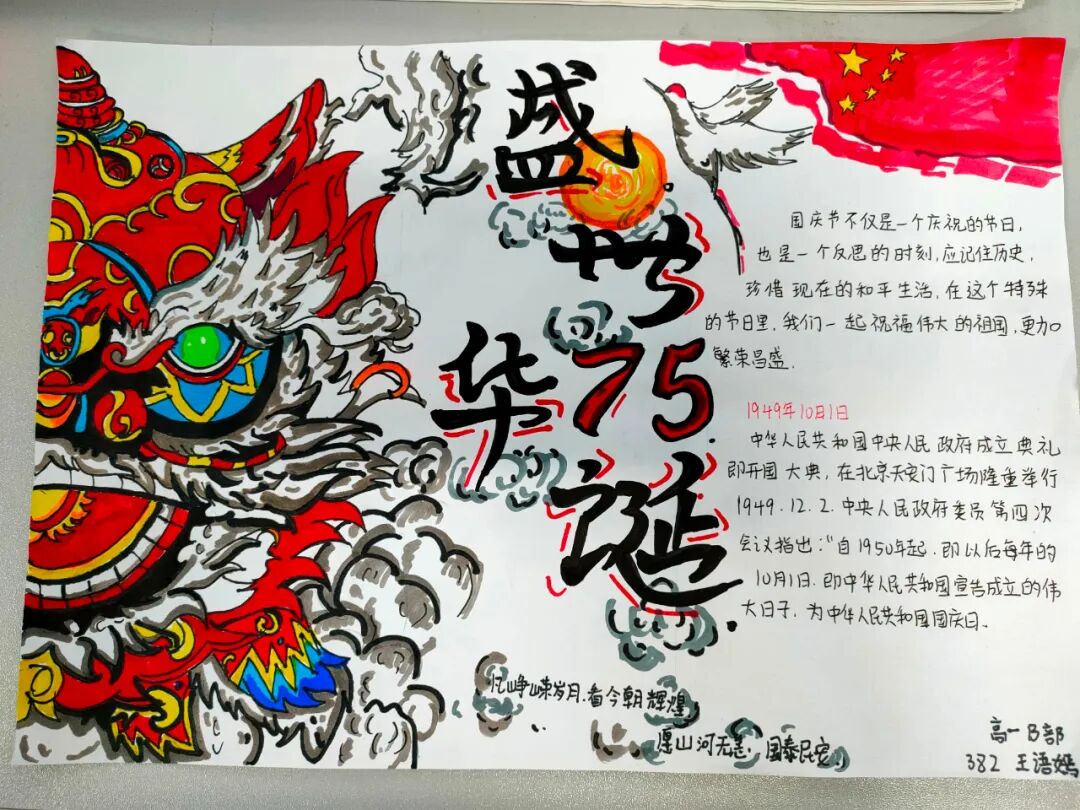 盛世
75
华诞
国庆节不仅是一个庆祝的节日,
也是一个反思的时刻,应记住历史,
珍惜现在的和平生治,在这个特殊
的节日里,我们一起祝福伟大的祖国,更加
繁荣昌盛.
1949年10月1日
中华人民共和国中央人民政府成立典礼
即开国大典,在北京天安门广场隆重举行
1949.12.2.中央人民政府委员第四次
会议指出:"自1950年起.即以后每年的
10月1日.即中华人民共和国宣告成立的伟
大日子.为中华人民共和国国庆日.
忆峥嵘岁月.看今朝辉煌
愿山河无恙.国泰民安.
高一B部
382 王语嫣